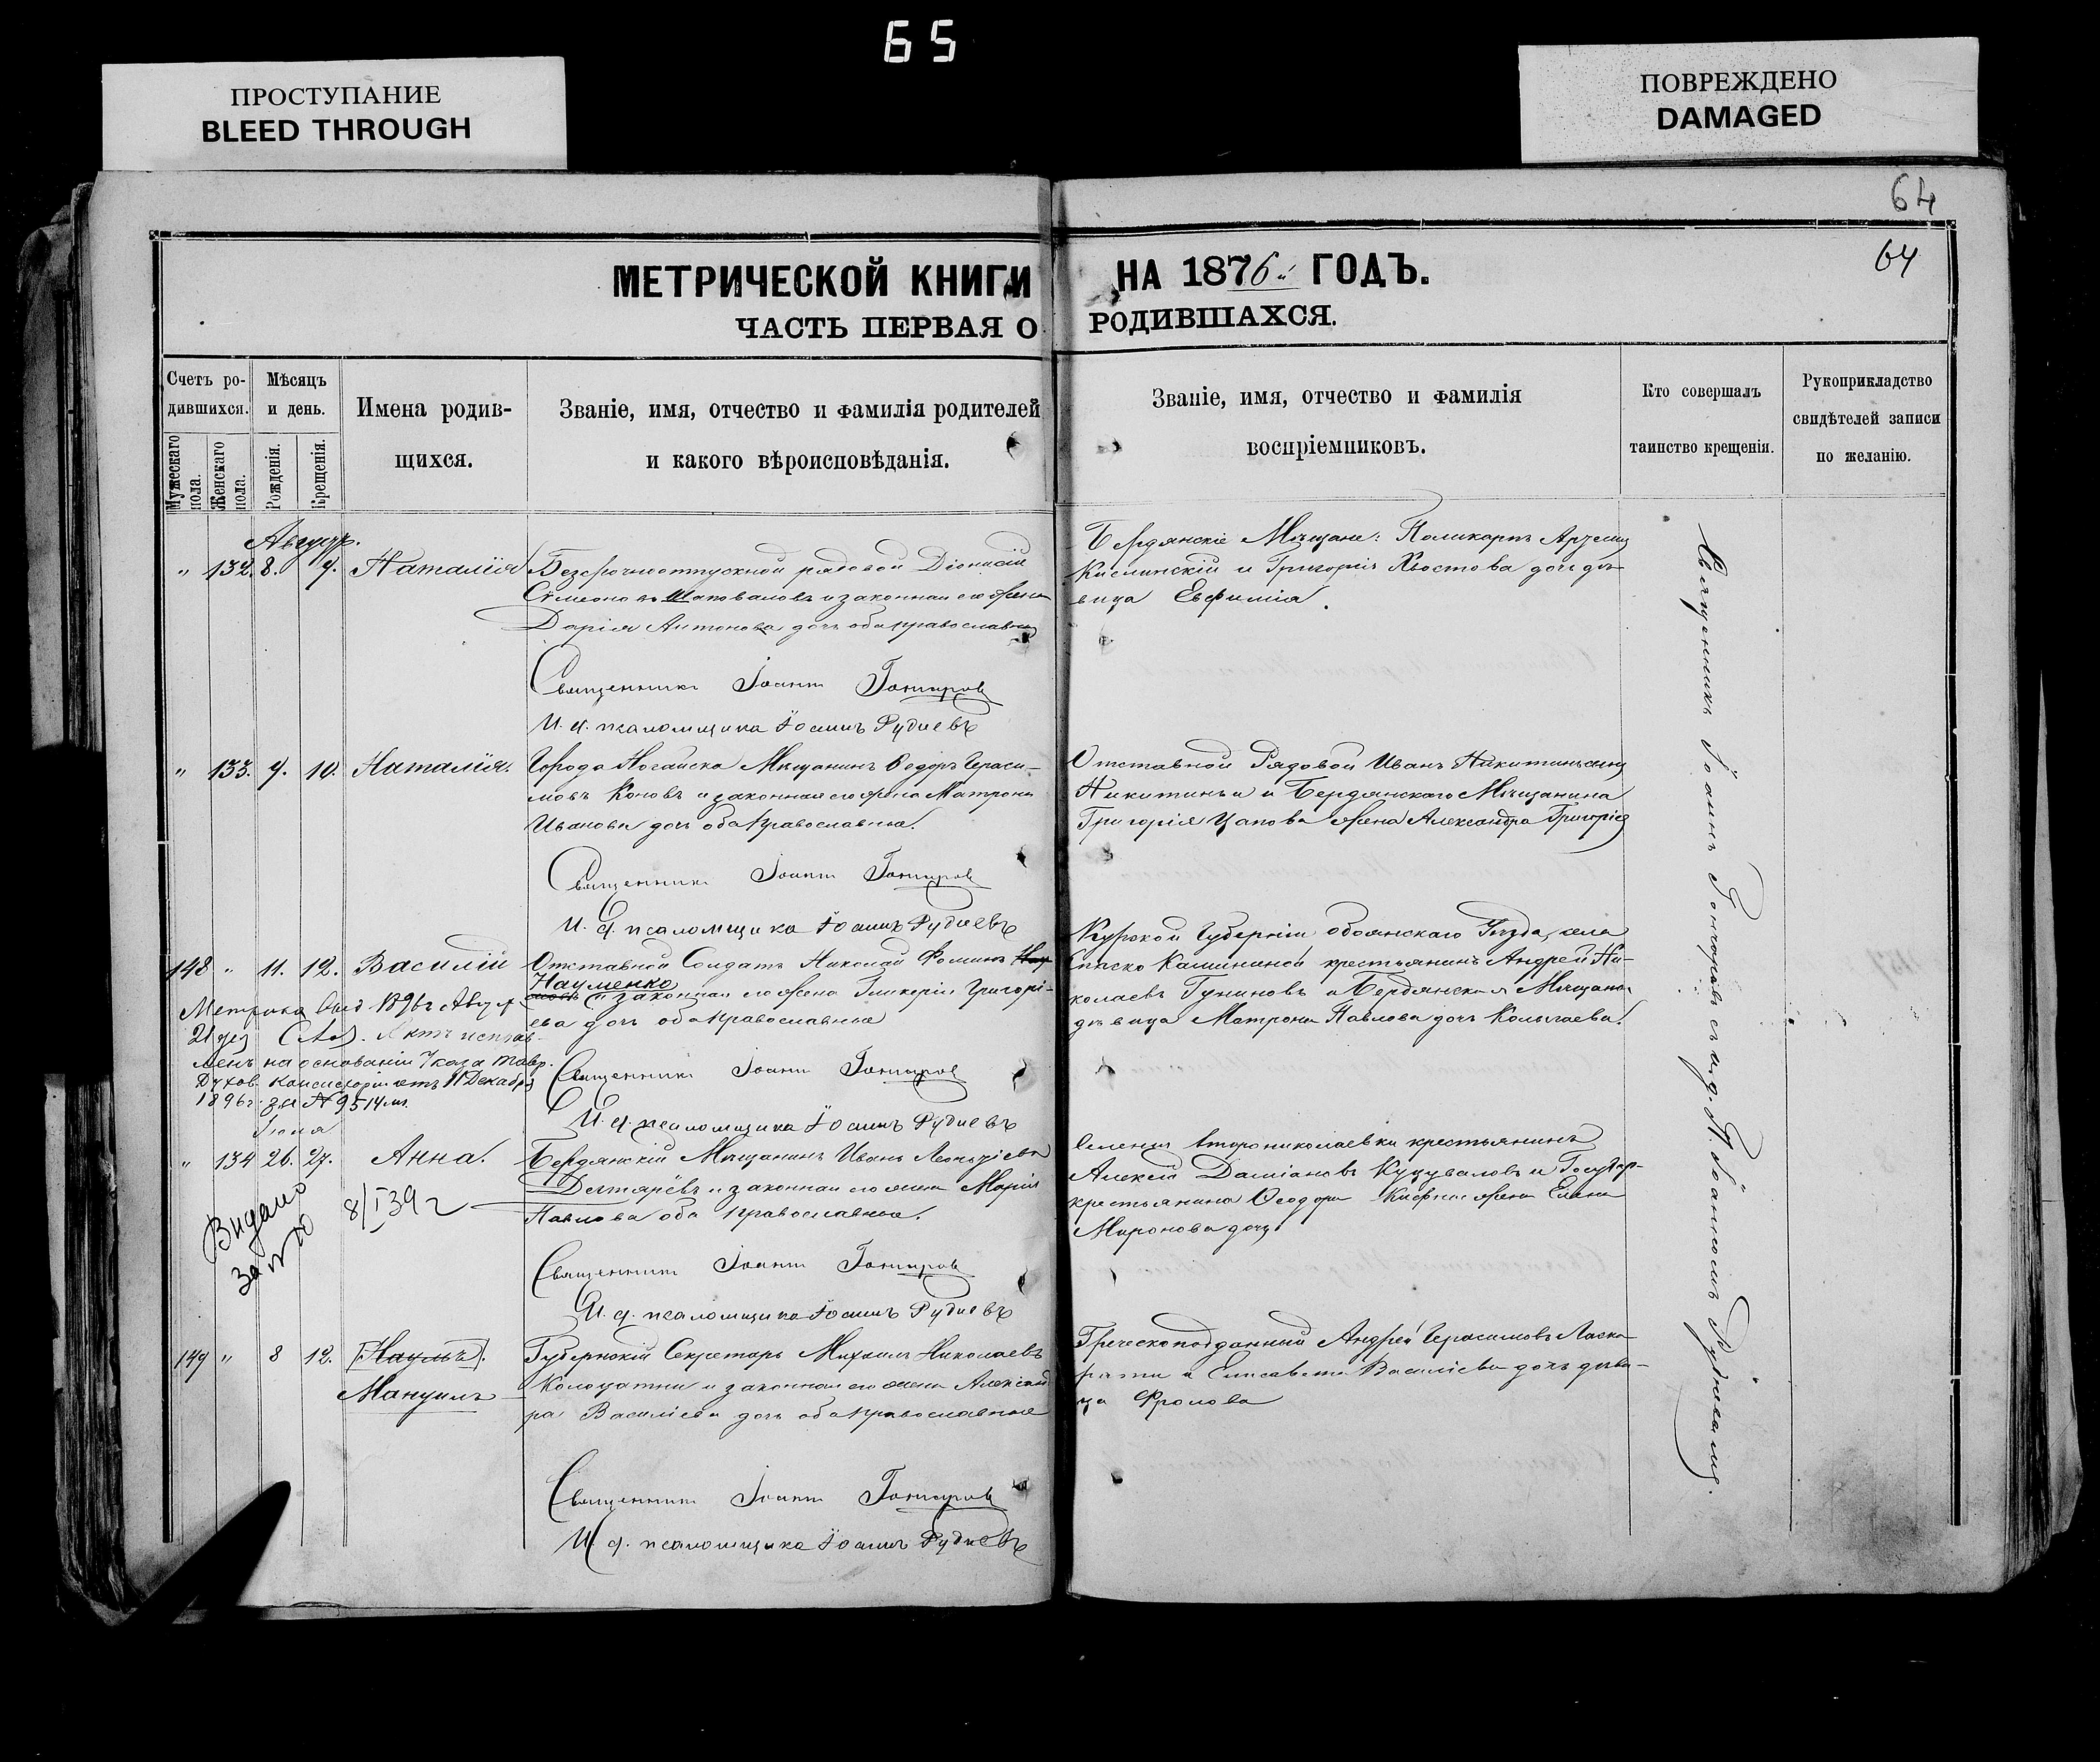 65
ПРОСТУПАНИЕ
BLEED THROUGH
ПОВРЕЖДЕНО
DAMAGED
64
64
МЕТРИЧЕСКОЙ КНИГИ НА 1876й ГОДЪ.
ЧАСТЬ ПЕРВАЯ О РОДИВШАХСЯ.
Счетъ ро-
дившихся.
Мужескаго пола.
Женскаго пола.
Мѣсяцъ
и день.
Рожденія.
Крещенія.
Имена родив-
щихся.
Званіе, имя, отчество и фамилія родителей
и какого вѣроисповѣданія.
Званіе, имя, отчество и фамилія
воспріемниковъ.
Кто совершалъ
таинство крещенія.
Рукоприкладство
свидѣтелей записи
по желанію.
Август.
" 132. 8. 9. Наталія
Безсрочноотпускной рядовой Діонисій
Симеоновъ Шаповаловъ и законная его жена
Дарія Антонова дочь оба православны
Бердянскіе Мѣщане: Поликарпъ
Кислинскій и Григорія Хвостова дочь дѣ-
вица Евфимія.
Священникъ Іоаннъ Гончаров
И. д. псаломщика Іоаннъ Рудневъ
" 133. 9. 10. Наталія.
Города Ногайска Мѣщанинъ Ѳедоръ Гераси-
мовъ Коновъ и законная его жена Матрона
Иванова дочь оба Православные.
Отставной Рядовой Иванъ Никитинъ сынъ
Никитинъ и Бердянскаго Мѣщанина
Григорія Цапова жена Александра Григорiев
Священникъ Іоаннъ Гончаров
И. д. псаломщика Іоаннъ Рудневъ
148 " 11. 12. Василій
Отставной Солдатъ Николай Фоминъ Нау
Науменко
и законная его жена Гликерія Григорі-
ева дочь оба Православные
Метрика выд 1896 г Август
21 дня Актъ исправ-
ленъ на основаніи Указа Тавр.
Духов. Консисторіи отъ 11 Декабря
1896 г. за № 9514 мъ.
Курской Губерніи обоянскаго Уѣзда, села
Спаско Калининой крестьянинъ Андрей Ни-
колаевъ Гуниновъ и Бердянская Мѣщанка
дѣвица Матрона Павлова дочь Колычаева.
Священникъ Іоаннъ Гончаров
И. д. псаломщика Іоаннъ Рудневъ
Іюля
" 134 26. 27. Анна.
Бердянскій Мѣщанинъ Иванъ Леонтіевъ
Дегтярёвъ и законная его жена Марія
Павлова оба Православные.
Видано
8/I 39 г
за № 70
Селенія Второниколаевки крестьянинъ
Алексій Даміановъ Куцуваловъ и Государ-
крестьянина Ѳеодора жена Елена
Миронова дочь
Священникъ Іоаннъ Гончаров
И. д. псаломщика Іоаннъ Рудневъ
149 " 8 12. [Наумъ].
Мануилъ
Губернскій Секретарь Михаилъ Николаевъ
Колоцатни и законная его жена Александ
ра Василіева дочь оба Православные
Греческоподданный Андрей Герасимовъ Ласка-
рати и Елисавета Василіева дочь дѣви-
ца Фролова
Священникъ Іоаннъ Гончаров
И. д. псаломщика Іоаннъ Рудневъ
Священникъ Іоаннъ Гончаровъ съ и. д. П. Іоанномъ Рудневымъ.